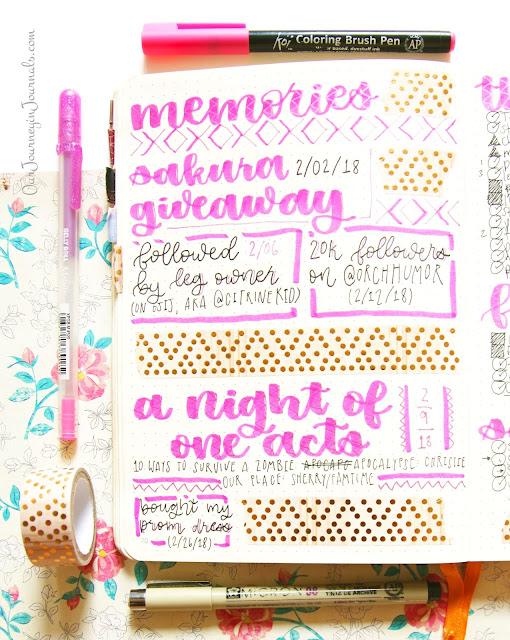 Koi Coloring Brush Pen
AP
memories
sakura 2/02/18
giveaway
followed 2/06
by leg owner
(ON OJIJ, AKA @CITRINEKID)
20k followers
on @ORCHHUMOR
(2/12/18)
a night of
one acts
2
9
18
10 WAYS TO SURVIVE A ZOMBIE APOCAPC APOCALYPSE: CURTSIE
OUR PLACE: SHERRY/FAMTIME
bought my
prom dress
(2/26/18)
MICRON 08
AP
GELLY ROLL
OurJourneyinJournals.com